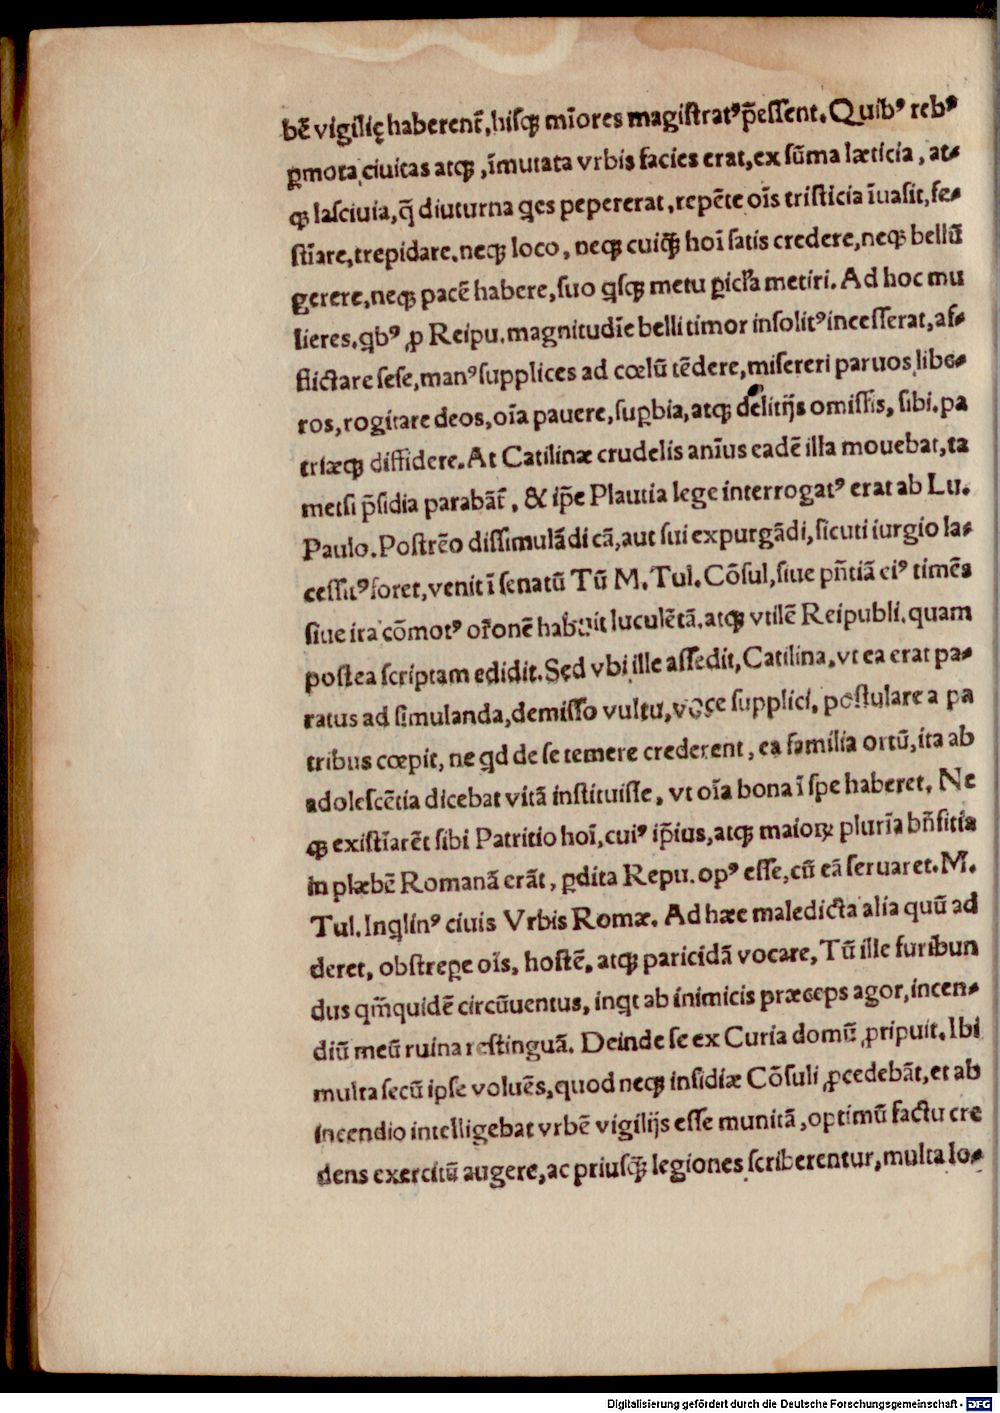 bē vigilię haberent᷑, hiſq; mīores magiſtratꝰ p̄eſſent. Quibꝰ rebꝰ
ꝑmota ciuitas atq;, īmutata vrbis facies erat, ex ſūma læticia, at-
q; laſciuia, q̄ diuturna ꝗes pepererat, repēte oīs triſticia īuaſit, fe-
ſtīare, trepidare, neq; loco, neq; cuiq̄; hoī ſatis credere, neq; bellū
gerere, neq; pacē habere, ſuo ꝗſq; metu ꝑicl'a metiri. Ad hoc mu
lieres, ꝗbꝰ ꝓ Reipu. magnitudīe belli timor inſolitꝰ inceſſerat, af-
flictare ſeſe, manꝰ ſupplices ad cœlū tēdere, miſereri paruos libe-
ros, rogitare deos, oīa pauere, ſuꝑbia, atq; delitijs omiſſis, ſibi, pa
triæq; diffidere. At Catilinæ crudelis anīus eadē illa mouebat, ta
metſi p̄ſidia parabāt᷑, & ip̄e Plautia lege interrogatꝰ erat ab Lu.
Paulo. Poſtrēo diſſimulādi cā, aut ſui expurgādi, ſicuti iurgio la-
ceſſitꝰ foret, venit ī ſenatū Tū M. Tul. Cōſul, ſiue pn̄tiā eiꝰ timēs
ſiue ira cōmotꝰ or̄onē habuit luculētā, atq; vtilē Reipubli. quam
poſtea ſcriptam edidit. Sed vbi ille aſſedit, Catilina, vt ea erat pa-
ratus ad ſimulanda, demiſſo vultu, voce ſupplici, poſtulare a pa
tribus cœpit, ne ꝗd de ſe temere crederent, ea familia ortū, ita ab
adoleſcētia dicebat vitā inſtituiſſe, vt oīa bona ī ſpe haberet, Ne
q; exiſtīarēt ſibi Patritio hoī, cuiꝰ ip̄ius, atq; maioꝝ plurīa bn̄fitia
in plæbē Romanā erāt, ꝑdita Repu. opꝰ eſſe, cū eā ſeruaret. M.
Tul. Inꝗlinꝰ ciuis Vrbis Romæ. Ad hæc maledicta alia quū ad
deret, obſtreꝑe oīs, hoſtē, atq; paricidā vocare, Tū ille furibun
dus qm̄quidē circūuentus, inꝗt ab inimicis præceps agor, incen-
diū meū ruina reſtinguā. Deinde ſe ex Curia domū ꝓripuit. Ibi
multa ſecū ipſe voluēs, quod neq; inſidiæ Cōſuli ꝓcedebāt, et ab
incendio intelligebat vrbē vigilijs eſſe munitā, optimū factu cre
dens exercitū augere, ac priuſq̄; legiones ſcriberentur, multa lo-
Digitalisierung gefördert durch die Deutsche Forschungsgemeinschaft - DFG